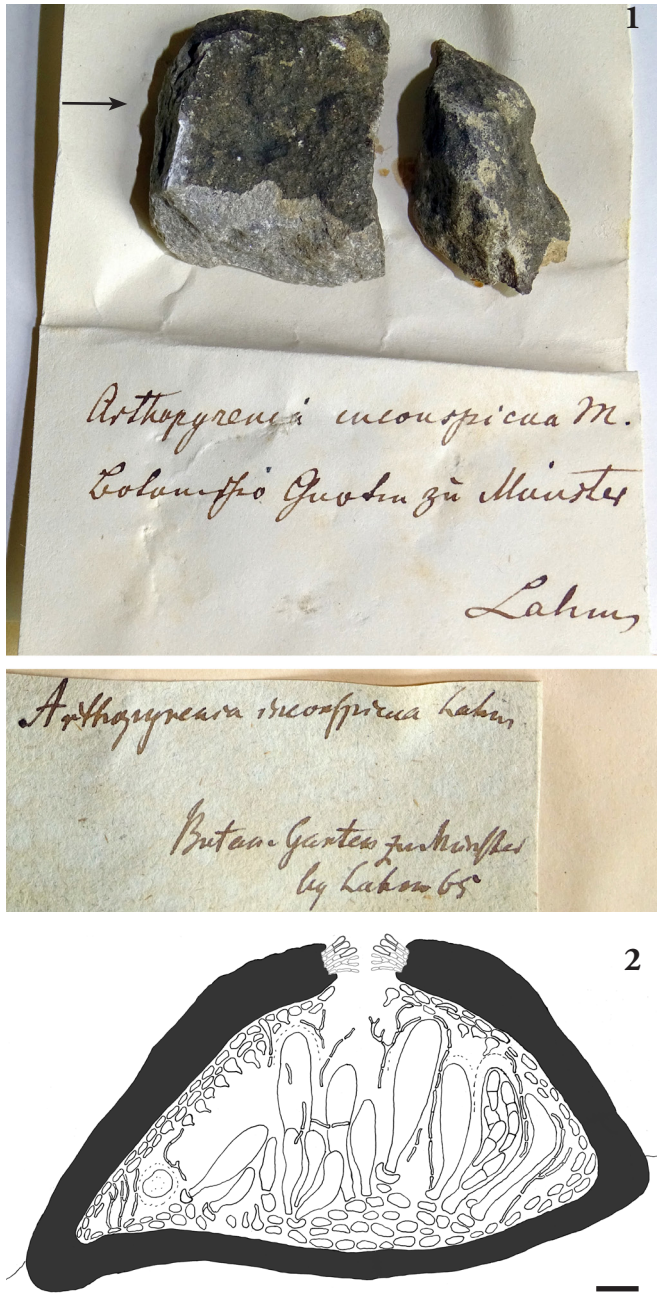 1
Arthopyrenia inconspicua M.
Garten zu Münster
Lahm
Arthopyrenia inconspicua Lahm
Botan. Garten zu Münster
leg Lahm 65
2